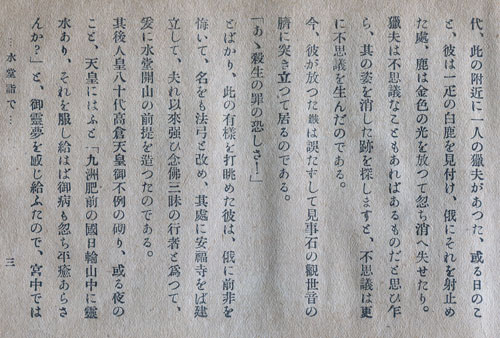 代、此の附近に一人の獵夫があつた、或る日のこ
と、彼は一疋の白鹿を見付け、俄にそれを射止め
た處、鹿は金色の光を放つて忽ち消へ失せたり。
獵夫は不思議なこともあればあるものだと思ひ乍
ら、其の姿を消した跡を探しますと、不思議は更
に不思議を生んだのである。
今、彼が放つた鏃は誤たずして見事石の觀世音の
臍に突き立つて居るのである。
「あゝ殺生の罪の恐しさ！」
とばかり、此の有樣を打眺めた彼は、俄に前非を
悔いて、名をも法弓と改め、其處に安福寺をば建
立して、夫れ以來强ひ念佛三昧の行者と爲つて、
爰に水堂開山の前提を造つたのである。
其後人皇八十代高倉天皇御不例の砌り、或る夜の
こと、天皇にはふと「九洲肥前の國日輪山中に靈
水あり、それを服し給はば御病も忽ち平癒あらさ
んか？」と、御靈夢を感じ給ふたので、宮中では
水堂詣で…
三